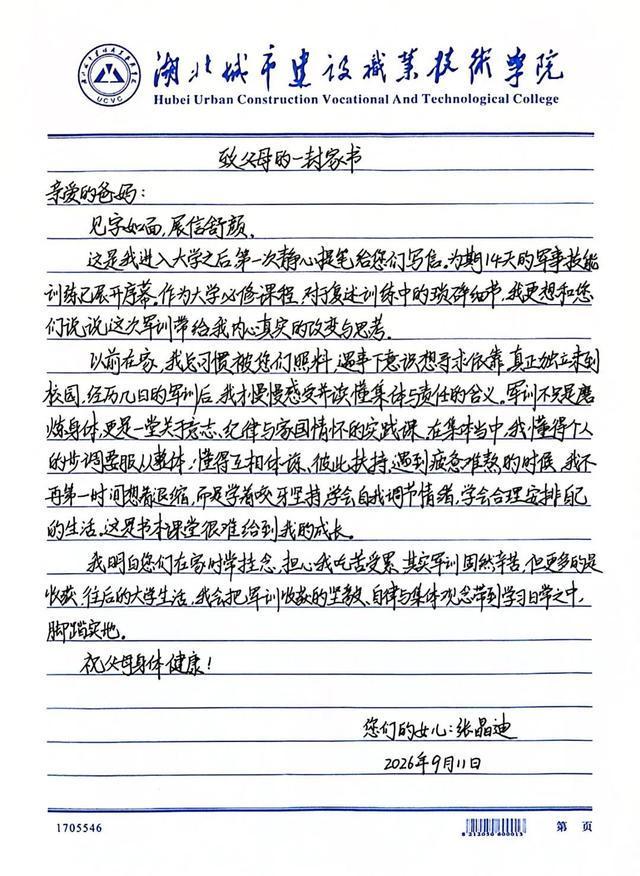 湖北城市建设职业技术学院
UCVC
Hubei Urban Construction Vocational And Technological College
致父母的一封家书
亲爱的爸妈：
见字如面，展信舒颜。
这是我进入大学之后第一次静心提笔给您们写信。为期14天的军事技能
训练已展开序幕。作为大学必修课程，对于复述训练中的琐碎细节，我更想和您
们说说这次军训带给我内心真实的改变与思考。
以前在家，我总习惯被您们照料，遇事下意识想寻求依靠，真正独立来到
校园，经历几日的军训后，我才慢慢感受并读懂集体与责任的含义。军训不只是磨
炼身体，更是一堂关于意志、纪律与家国情怀的实践课。在集体当中，我懂得个人
的步调要服从整体；懂得互相体谅、彼此扶持。遇到疲惫难熬的时候，我不
再第一时间想着退缩，而是学着咬牙坚持，学会自我调节情绪，学会合理安排自己
的生活。这是书本课堂很难给到我的成长。
我明白您们在家时常挂念，担心我吃苦受累。其实军训固然辛苦，但更多的是
收获。往后的大学生活，我会把军训收获的坚毅、自律与集体观念带到学习日常之中，
脚踏实地。
祝父母身体健康！
您们的女儿：张晶迪
2026年9月11日
1705546
8 212050 600013
第 页